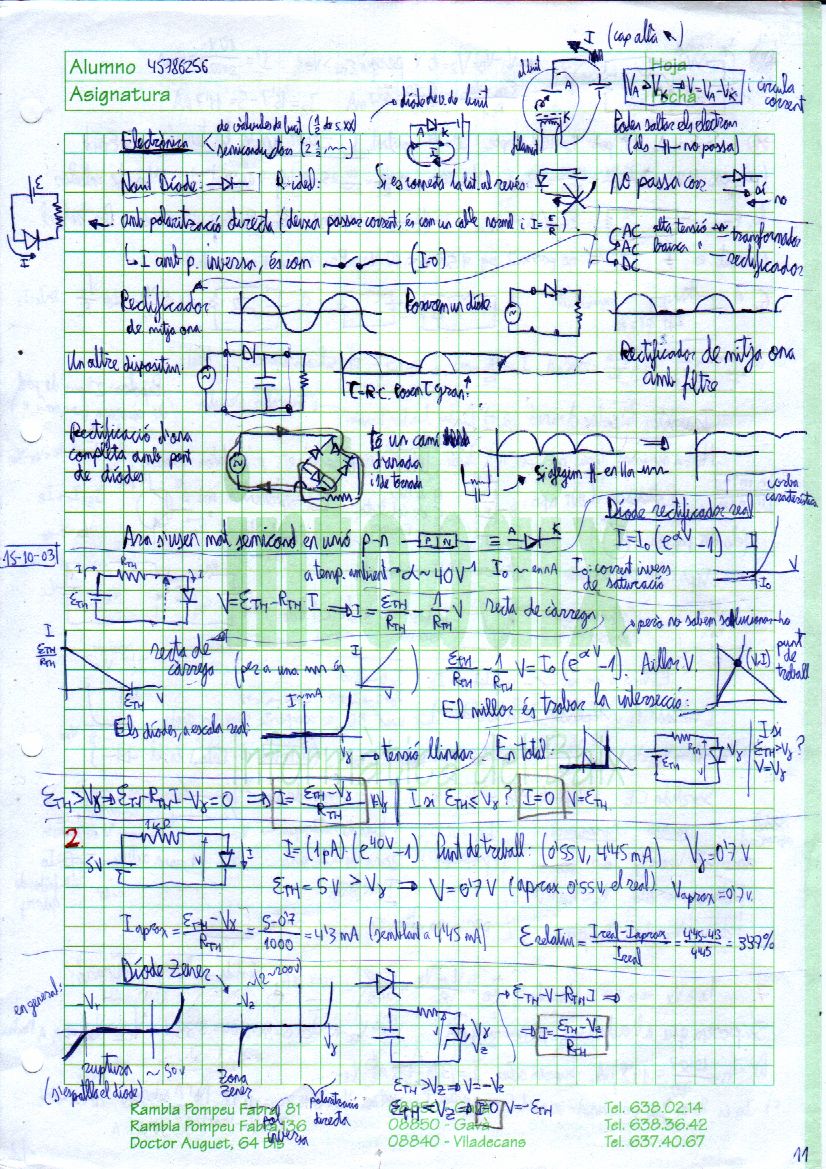 Alumno 45786256
Asignatura
Hoja
Fecha
I (cap allà)
al buit
A
K
filament
VA > VK ⇒ V = VA - VK i circula corrent
Poden saltar els electrons
(als no passa)
Electrònica
de vàlvules de buit (1/2 de s.XX)
semiconductors (2 1/2, )
díode de buit
A K
I
Nou! Díode: R-ideal:
Si es connecta la bat. al revés:
No passa corr.
sí
no
ε
I
amb polarització directa (deixa passar corrent, és com un cable normal i I = ε/R)
I amb p. inversa, és com (I=0)
AC alta tensió
AC baixa "
DC
transformador
rectificador
Rectificador
de mitja ona
Posarem un díode
Un altre dispositiu:
τ=R·C. Posem τ gran.
Rectificador de mitja ona
amb filtre
Rectificació d'ona
completa amb pont
de díodes
té un camí
d'anada
i de tornada
⇒
Si afegim en lla
Ara s'usen mat. semicond. en unió p-n
P N ≡ A K
Díode rectificador real
I = I₀ (e^αV - 1)
corba
característica
I
V
I₀
15-10-03
I RTH I
εTH V
a temp. ambient → α ~ 40 V⁻¹ I₀ ~ en nA I₀: corrent invers
de saturació
V = εTH - RTH I ⇒ I = εTH/RTH - 1/RTH V recta de càrrega
I
εTH/RTH
εTH V
recta de
càrrega (per a una és I V)
εTH/RTH - 1/RTH V = I₀ (e^αV - 1). Aïllar V.
però no sabem solucionar-ho
punt
de
treball
(V,I)
El millor és trobar la intersecció:
Els díodes, a escala real:
I~mA
Vγ → tensió llindar. En total:
RTH
εTH V Vγ
I si
εTH > Vγ ?
V = Vγ
εTH > Vγ ⇒ εTH - RTH I - Vγ = 0 ⇒ I = εTH - Vγ / RTH
I si εTH ≤ Vγ ? I=0 V = εTH
2.
1kΩ
5V V I
I = (1pA) (e^40V - 1) Punt de treball: (0'55V, 4'45 mA) Vγ = 0'7V
εTH = 5V > Vγ ⇒ V = 0'7V (aprox 0'55V, el real). Vaprox = 0'7V.
Iaprox = εTH - Vγ / RTH = 5-0'7 / 1000 = 4'3 mA (semblant a 4'45 mA)
Erelatiu = Ireal - Iaprox / Ireal = 4'45-4'3 / 4'45 = 3'37%
Díode Zener
en general:
-Vr
ruptura ~50V
(s'espatlla el díode)
~(2~200V)
-Vz
zona
zener
pol.
inversa
polarització
directa
Vγ
Vz
εTH - V - RTH I ⇒
⇒ I = εTH - Vz / RTH
εTH > Vz ⇒ V = -Vz
εTH ≤ Vz ⇒ I=0 V = -εTH
Rambla Pompeu Fabra, 81
Rambla Pompeu Fabra, 136
Doctor Auguet, 64 Bis
08850 - Gavà
08850 - Gavà
08840 - Viladecans
Tel. 638.02.14
Tel. 638.36.42
Tel. 637.40.67
11